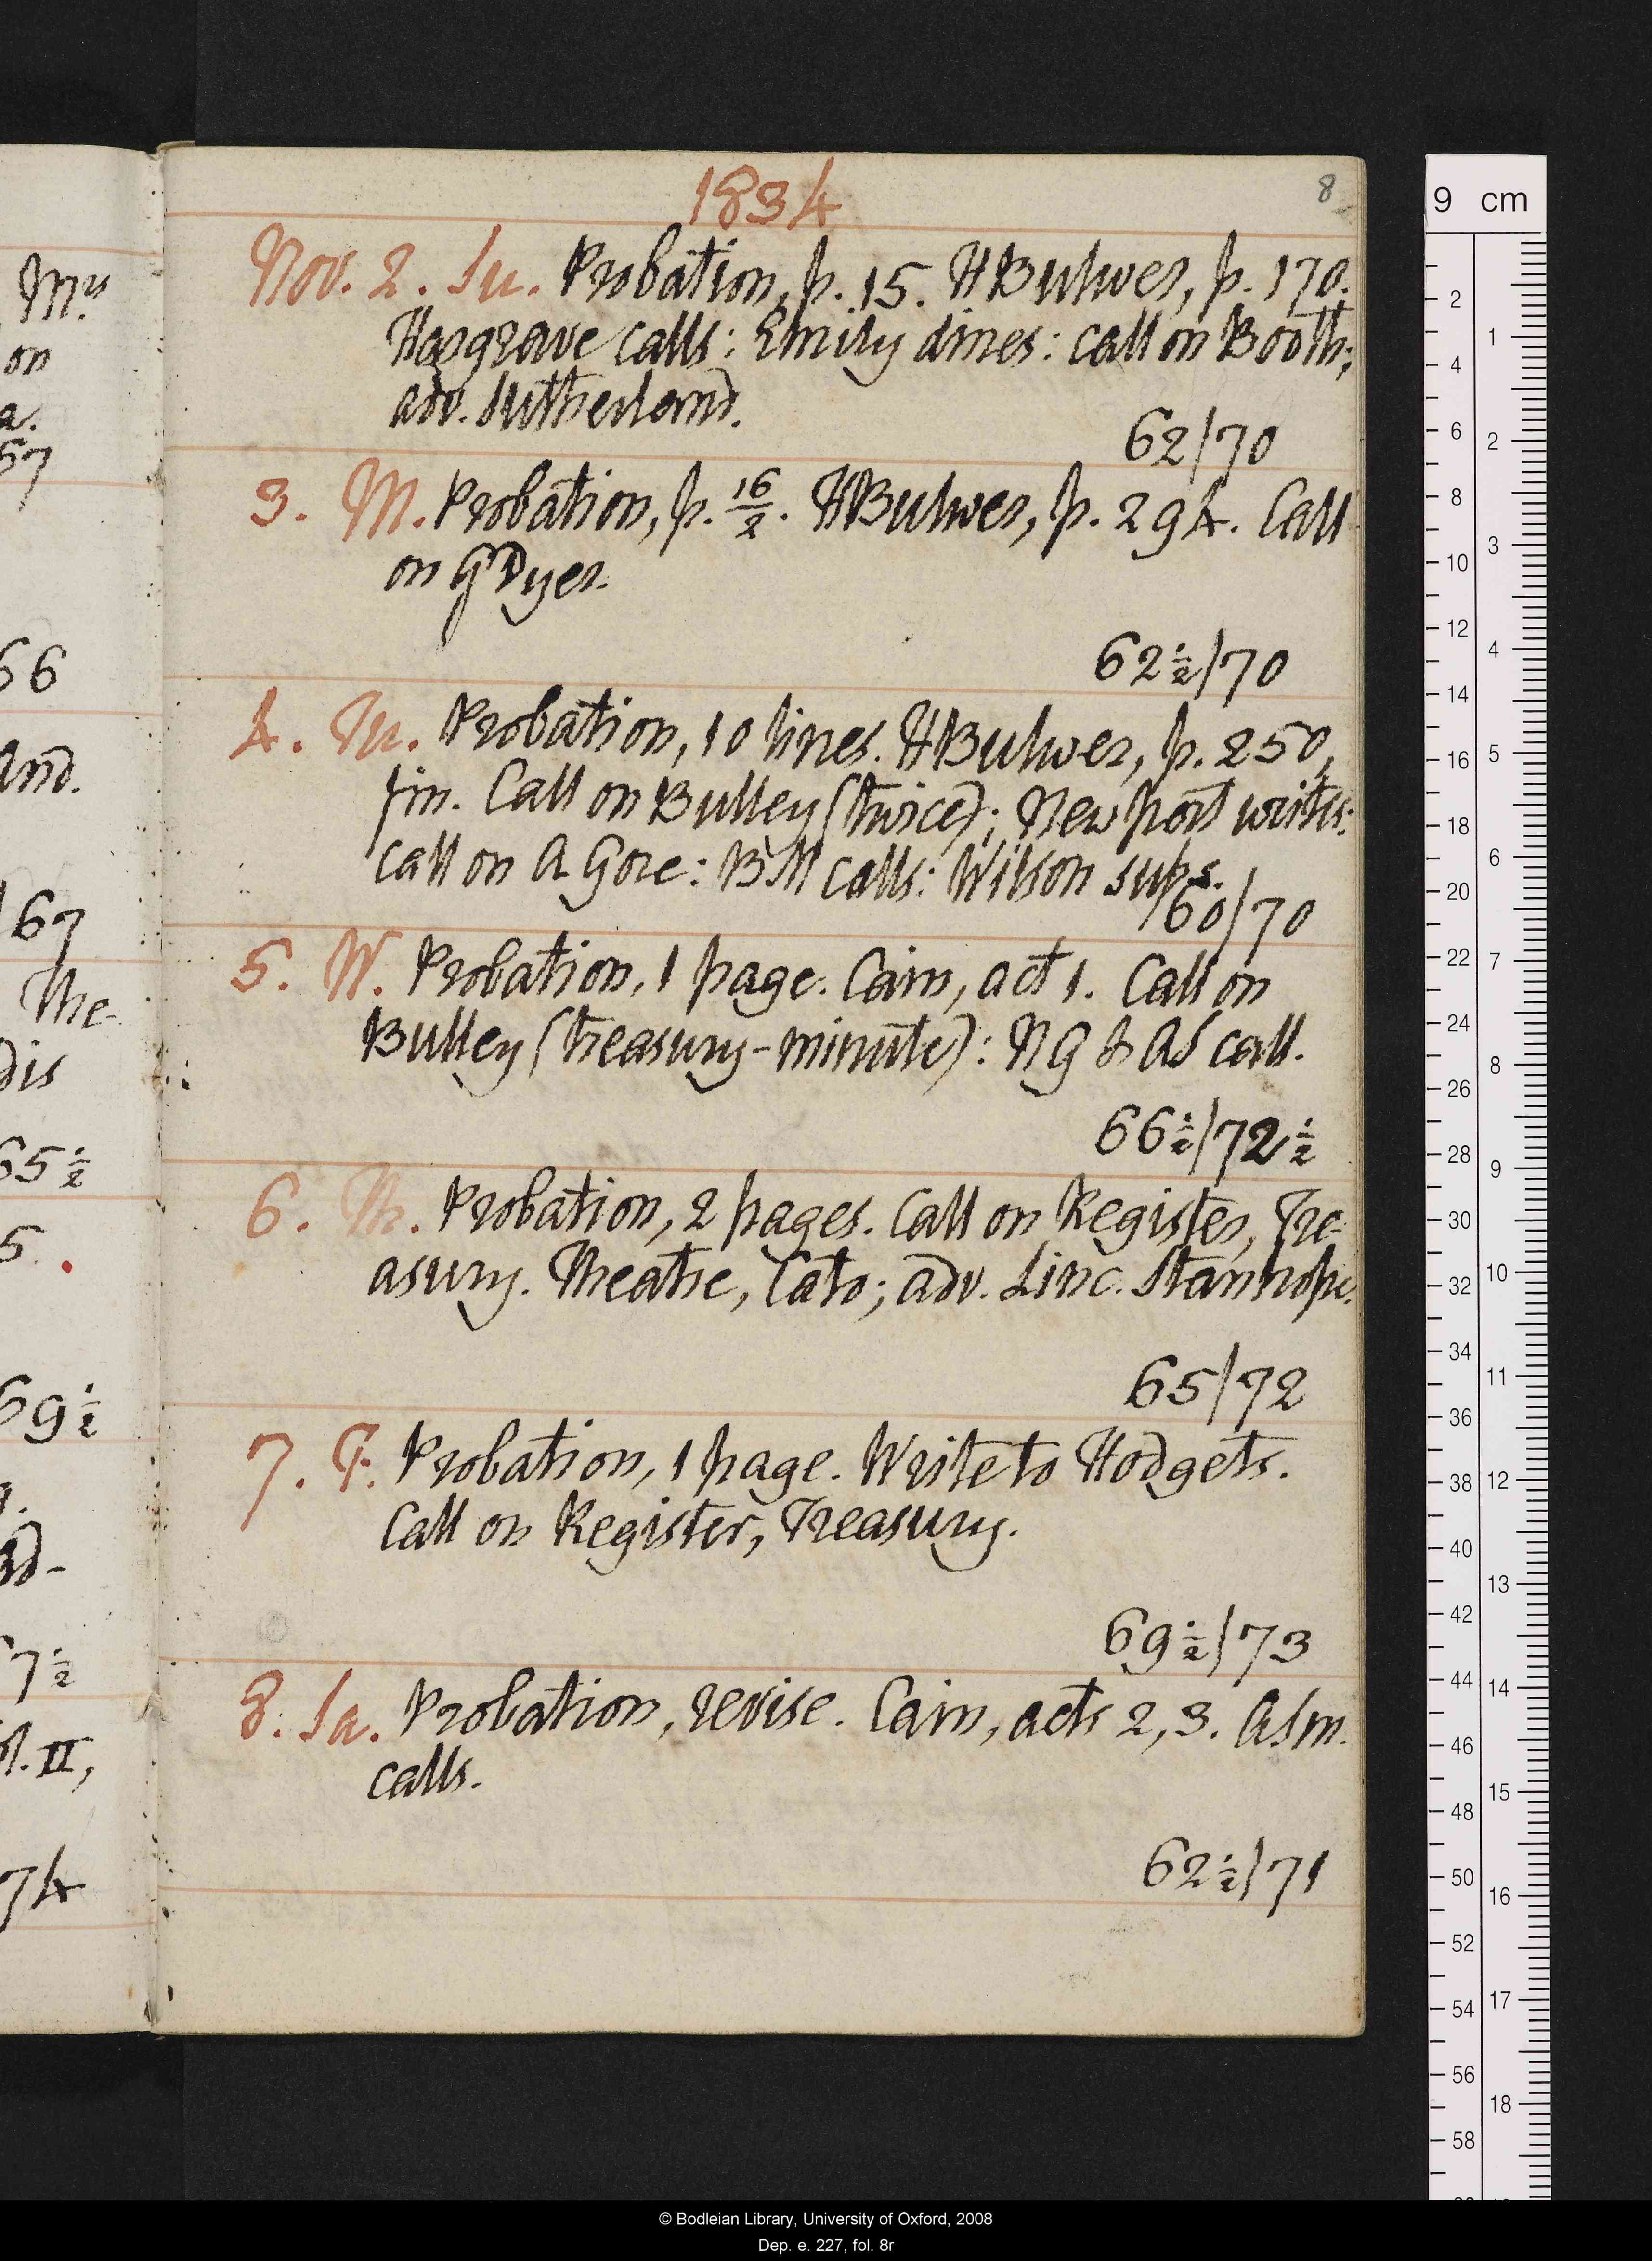 1834
8
Nov. 2. Su. Probation, p. 15. HBulwer, p. 170.
Hargrave calls: Emily dines: call on Booth;
adv. Sutherland.
62/70
3. M. Probation, p. 16/2. HBulwer, p. 294. Call
on GDyer.
62½/70
4. Tu. Probation, 10 lines. HBulwer, p. 250,
fin. Call on Bulley (twice); Newport writes:
call on A Gore: BM calls: Wilson sups.
60/70
5. W. Probation, 1 page. Cain, act 1. Call on
Bulley (treasury-minute): NG & AS call.
66½/72½
6. Th. Probation, 2 pages. Call on Register, Tre-
asury. Theatre, Cato; adv. Linc. Stanhope.
65/72
7. F. Probation, 1 page. Write to Hodgets.
Call on Register, Treasury.
69½/73
8. Sa. Probation, revise. Cain, acts 2, 3. ASm.
calls.
62½/71
Mrs
on
a.
57
66
and.
67
The-
dis
65½
5.
69½
d-
7½
II,
74
9 cm
2
4
6
8
10
12
14
16
18
20
22
24
26
28
30
32
34
36
38
40
42
44
46
48
50
52
54
56
58
1
2
3
4
5
6
7
8
9
10
11
12
13
14
15
16
17
18
© Bodleian Library, University of Oxford, 2008
Dep. e. 227, fol. 8r